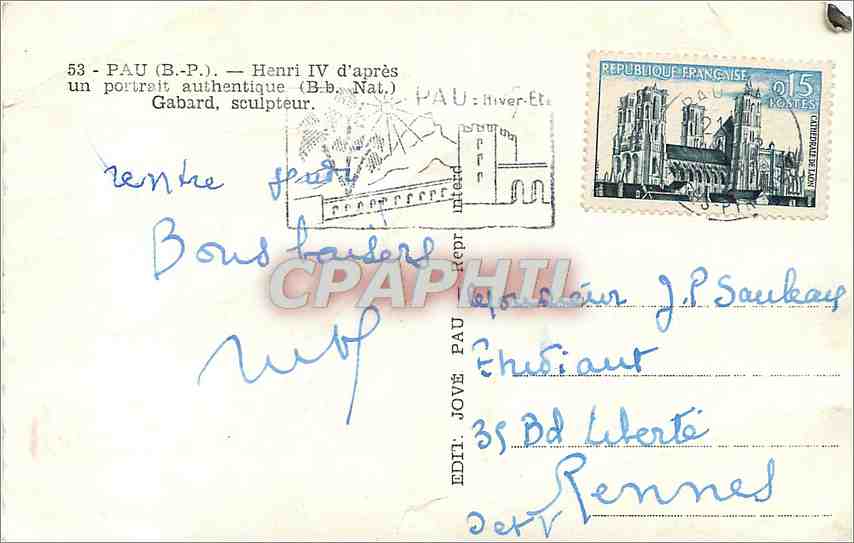 53 - PAU (B.-P.). — Henri IV d'après
un portrait authentique (B.b. Nat.)
Gabard, sculpteur.
PAU : Hiver-Eté
REPUBLIQUE FRANÇAISE
0,15
POSTES
CATHEDRALE DE LAON
PAU
21
rentre jeudi
Bons baisers
CPAPHIL
EDIT. JOVÉ PAU — Repr. interd
Monsieur J.P. Saukay
Etudiant
35 Bd Liberté
Rennes